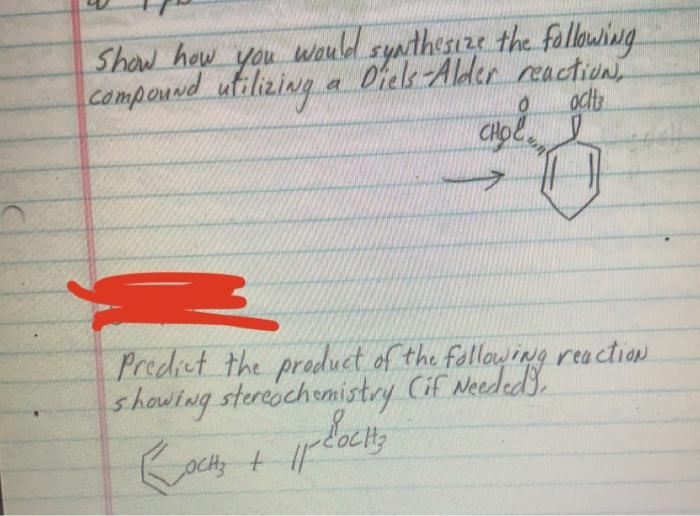 Show how you would synthesize the following
compound utilizing a Diels-Alder reaction.
O OCH3
→
Predict the product of the following reaction
showing stereochemistry (if needed).
O
OCH3 + COCH3